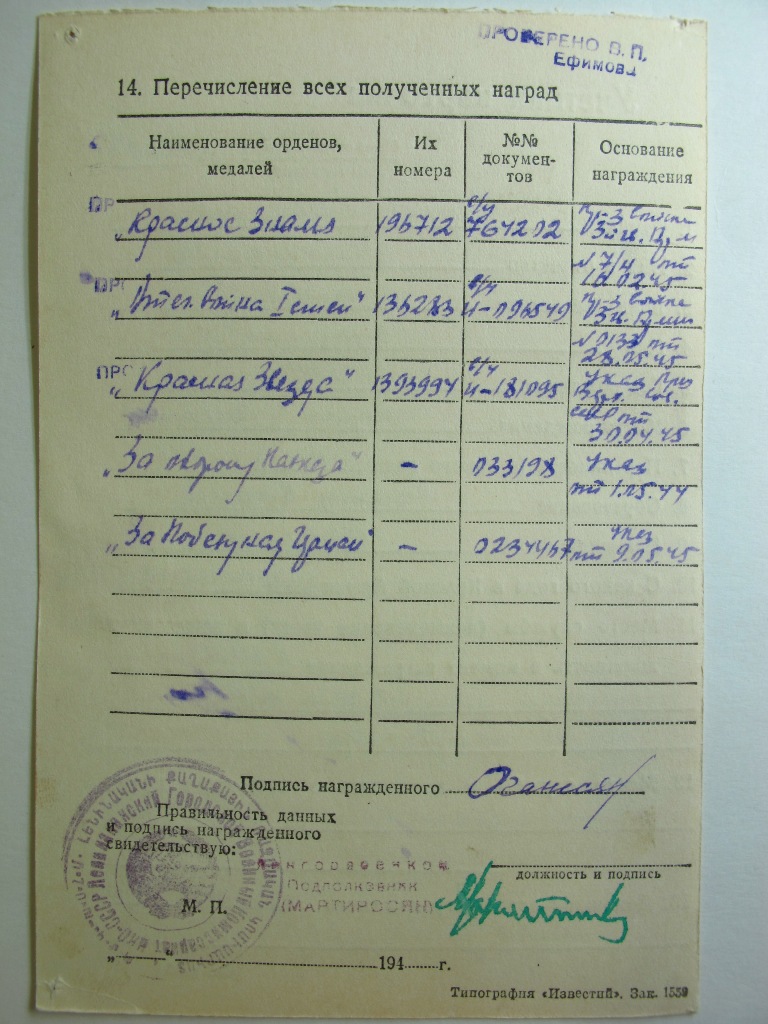 ПРОВЕРЕНО В. П.
Ефимова
14. Перечисление всех полученных наград
Наименование орденов, медалей
Их номера
№№ документов
Основание награждения
„Красное Знамя 196712 764202
№ 7/н от 18.02.45
„Отеч. Война I степ" И-096549
№ 0133 от
28.05.45
„Красная Звезда" 1393994 И-181095 Указ През
Верх. Сов.
СССР от
30.04.45
„За оборону Кавказа" - 033198 указ
от 1.05.44
„За Победу над Герман" - 0234467 указ
от 9.05.45
Подпись награжденного
Правильность данных
и подпись награжденного
свидетельствую:
Ленгорвоенком
Подполковник
(МАРТИРОСЯН)
должность и подпись
М. П.
„ " 194 г.
Типография «Известий». Зак. 1559